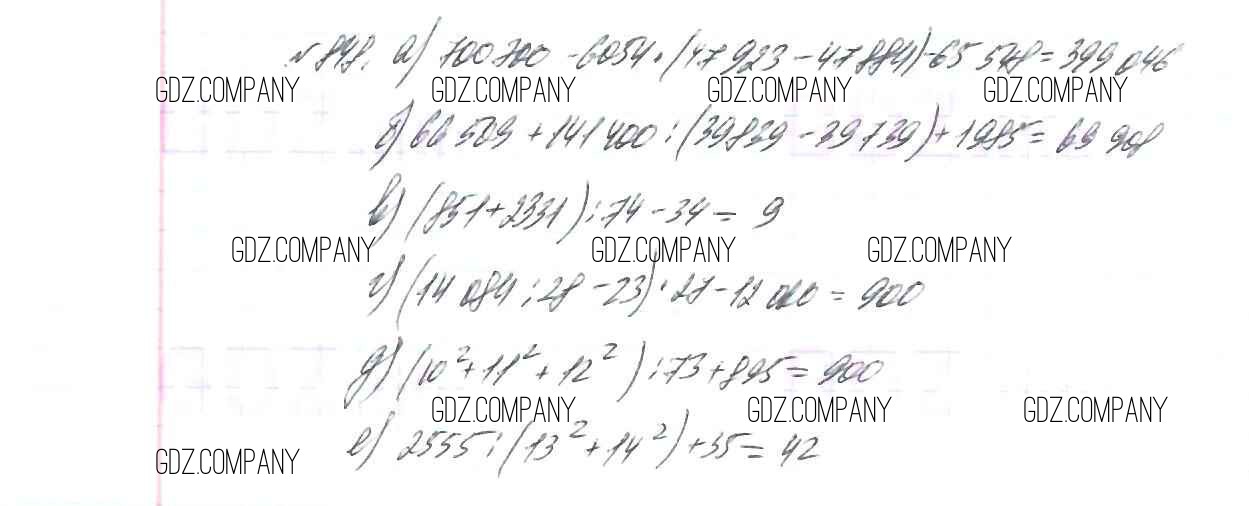 № 848. а) 700 700 - 6054 · (47 923 - 47 884) - 65 548 = 399 046
GDZ.COMPANY GDZ.COMPANY GDZ.COMPANY GDZ.COMPANY
б) 66 509 + 141 400 : (39839 - 39739) + 1985 = 69 908
в) (851 + 2331) : 74 - 34 = 9
GDZ.COMPANY GDZ.COMPANY GDZ.COMPANY
г) (14 084 : 28 - 23) · 27 - 12 060 = 900
д) (10² + 11² + 12²) : 73 + 895 = 900
GDZ.COMPANY GDZ.COMPANY GDZ.COMPANY
е) 2555 : (13² + 14²) + 35 = 42
GDZ.COMPANY